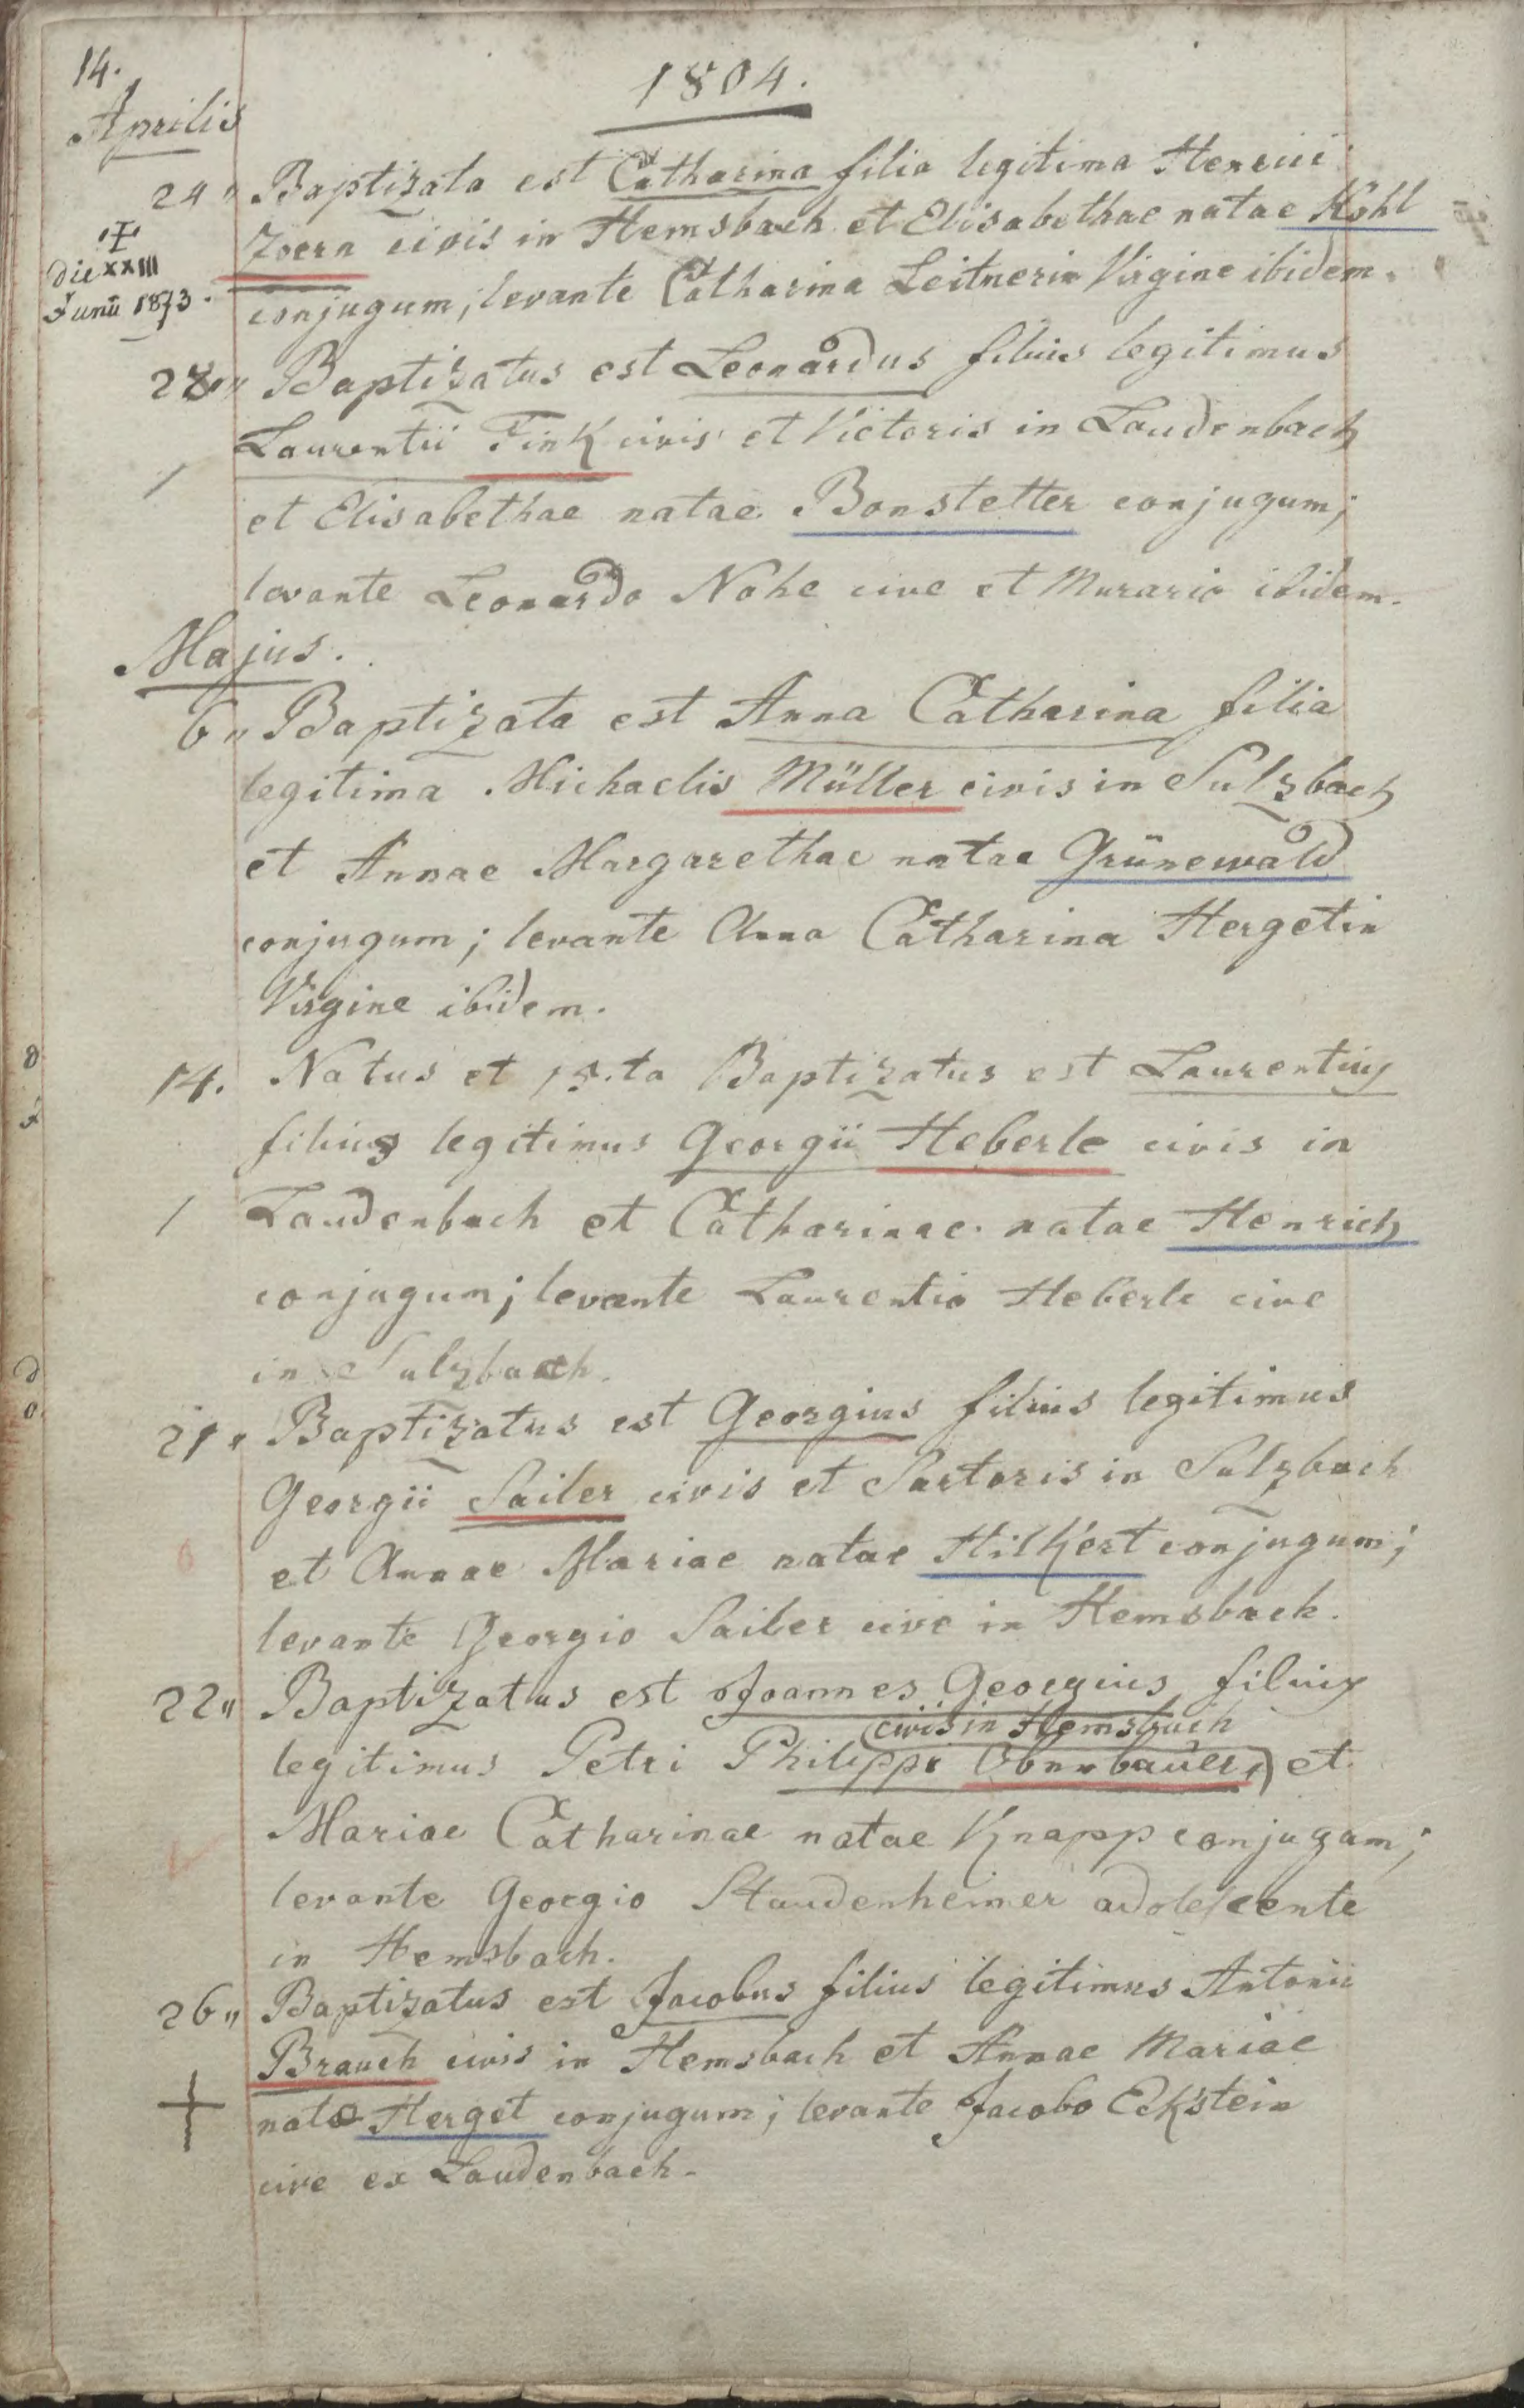 14.
1804.
Aprilis
24" Baptizata est Catharina filia legitima Henrici
Zoern civis in Hemsbach et Elisabethae natae Kohl
† die XXIII Junii 1873.
conjugum, levante Catharina Leitnerin Virgine ibidem.
28" Baptizatus est Leonardus filius legitimus
Laurentii Fink civis et Victoris in Laudenbach
et Elisabethae natae Bonstetter conjugum;
levante Leonardo Nohe cive et Murario ibidem.
Majus.
6" Baptizata est Anna Catharina filia
legitima Michaelis Müller civis in Sulzbach
et Annae Margarethae natae Grünewald
conjugum; levante Anna Catharina Hergetin
Virgine ibidem.
14. Natus et 15.ta Baptizatus est Laurentius
filius legitimus Georgii Heberle civis in
Laudenbach et Catharinae natae Henrich
conjugum; levante Laurentio Heberle cive
in Sulzbach.
21" Baptizatus est Georgius filius legitimus
Georgii Sailer civis et Sartoris in Sulzbach
et Annae Mariae natae Hilkert conjugum;
levante Georgio Sailer cive in Hemsbach.
22" Baptizatus est Joannes Georgius filius
civis in Hemsbach
legitimus Petri Philippi Obnnbauer, et
Mariae Catharinae natae Knapp conjugum;
levante Georgio Staudenheimer adolescente
in Hemsbach.
26" Baptizatus est Jacobus filius legitimus Antonii
Brauch civis in Hemsbach et Annae Mariae
natae Herget conjugum; levante Jacobo Eckstein
cive ex Laudenbach.